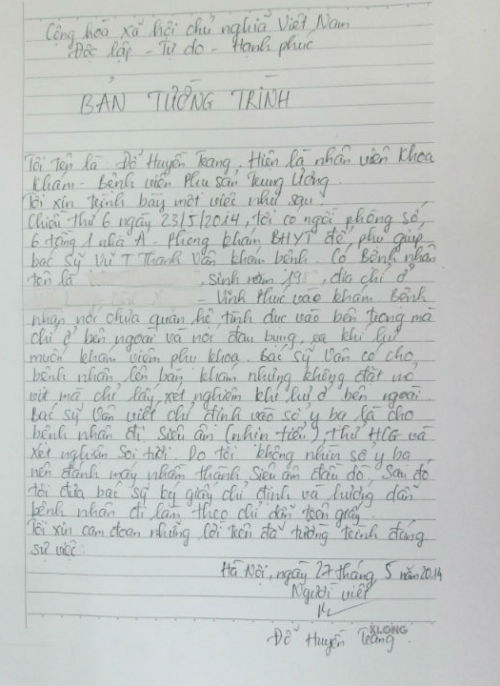 Cộng hoà xã hội chủ nghĩa Việt Nam
Độc lập - Tự do - Hạnh phúc
BẢN TƯỜNG TRÌNH
Tôi tên là Đỗ Huyền Trang. Hiện là nhân viên khoa
khám - Bệnh viện Phụ sản Trung Ương.
Tôi xin trình bày một việc như sau:
Chiều thứ 6 ngày 23/5/2014, tôi có ngồi phòng số
6 tầng 1 nhà A - Phòng khám BHYT để phụ giúp
bác sỹ Vũ T Thanh Vân khám bệnh. Có Bệnh nhân
tên là , sinh năm 19 , địa chỉ ở
- Vĩnh Phúc vào khám. Bệnh
nhân nói chưa quan hệ tình dục vào bên trong mà
chỉ ở bên ngoài và nói đau bụng, ra khí hư
muốn khám viêm phụ khoa. Bác sỹ Vân có cho
bệnh nhân lên bàn khám nhưng không đặt mỏ
vịt mà chỉ lấy xét nghiệm khí hư ở bên ngoài.
Bác sỹ Vân viết chỉ định vào sổ y bạ là cho
bệnh nhân đi siêu âm (nhịn tiểu), thử HCG và
xét nghiệm soi tươi. Do tôi không nhìn sổ y bạ
nên đánh máy nhầm thành siêu âm đầu dò, sau đó
tôi đưa bác sỹ ký giấy chỉ định và hướng dẫn
bệnh nhân đi làm theo chỉ dẫn trên giấy.
Tôi xin cam đoan những lời trên đã tường trình đúng
sự việc.
Hà Nội, ngày 27 tháng 5 năm 2014
Người viết
Đỗ Huyền Trang
KLONG